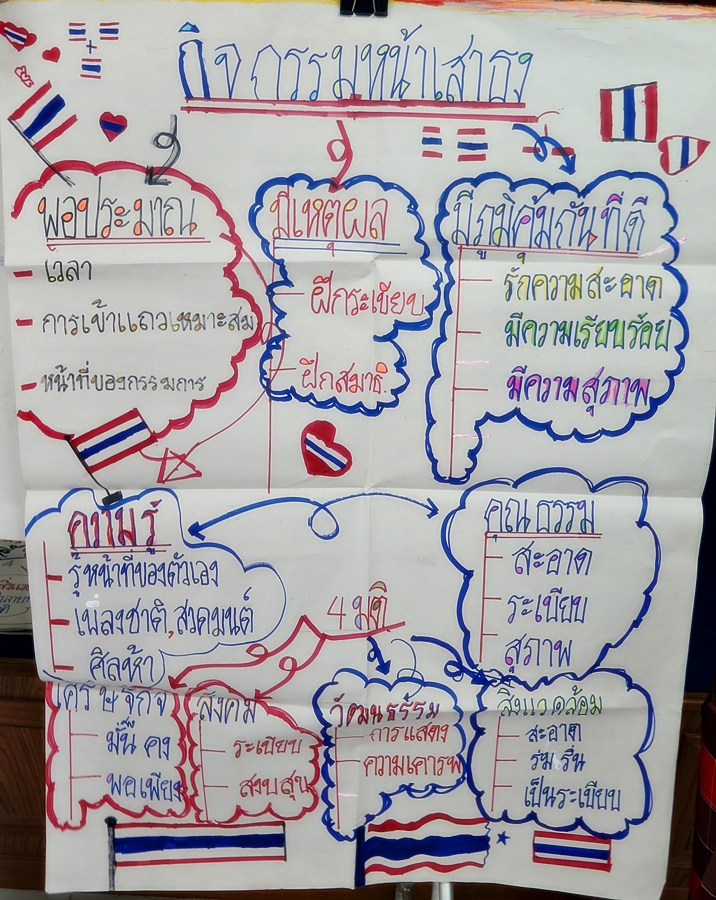 กิจกรรมหน้าเสาธง
พอประมาณ
- เวลา
- การเข้าแถวเหมาะสม
- หน้าที่ของกรรมการ
มีเหตุผล
- ฝึกระเบียบ
- ฝึกสมาธิ.
มีภูมิคุ้มกันที่ดี
- รักความสะอาด
- มีความเรียบร้อย
- มีความสุภาพ
ความรู้
- รู้หน้าที่ของตัวเอง
- เพลงชาติ, สวดมนต์
- ศีลห้า
คุณธรรม
- สะอาด
- ระเบียบ
- สุภาพ
4 มติ
เศรษฐกิจ
- มั่นคง
- พอเพียง
สังคม
- ระเบียบ
- สงบสุข
วัฒนธรรม
- การแสดง
- ความเคารพ
สิ่งแวดล้อม
- สะอาด
- ร่มรื่น
- เป็นระเบียบ